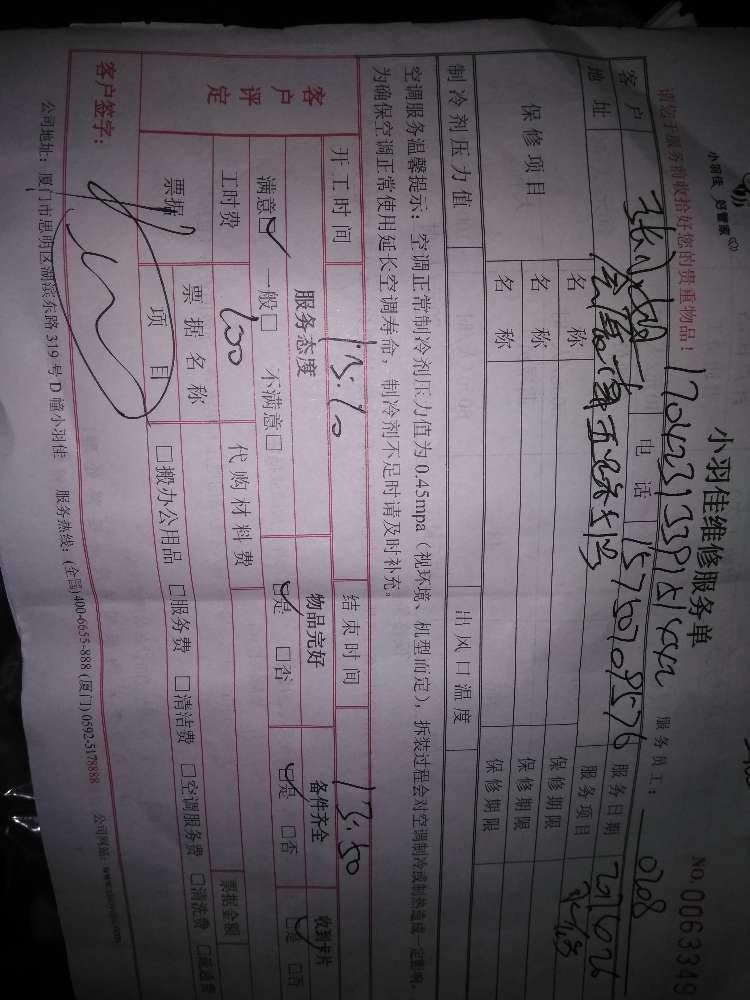 小羽佳 好管家
请您于服务前收拾好您的贵重物品！
小羽佳维修服务单
No.0063349
服务员工： 0208
客户 电话 15750709576 服务日期
地址 服务项目
保修项目 名称 保修期限
名称 保修期限
名称 保修期限
制冷剂压力值 出风口温度
空调服务温馨提示：空调正常制冷剂压力值为0.45mpa（视环境、机型而定），拆装过程会对空调制冷或制热造成一定影响，
为确保空调正常使用延长空调寿命，制冷剂不足时请及时补充。
开工时间 结束时间 13:50
客户评定 服务态度 物品完好 备件齐全 收到卡片
满意☑ 一般□ 不满意□ ☑是 □否 ☑是 □否 ☑是 □否
工时费 200 代购材料费
票据 票据名称 票据金额
项目 □搬办公用品 □服务费 □清洁费 □空调服务费 □清洗费 □疏通费
客户签字：
公司地址：厦门市思明区湖滨东路319号D幢小羽佳 服务热线：(全国)400-6655-888 (厦门)0592-5178888 公司网站：